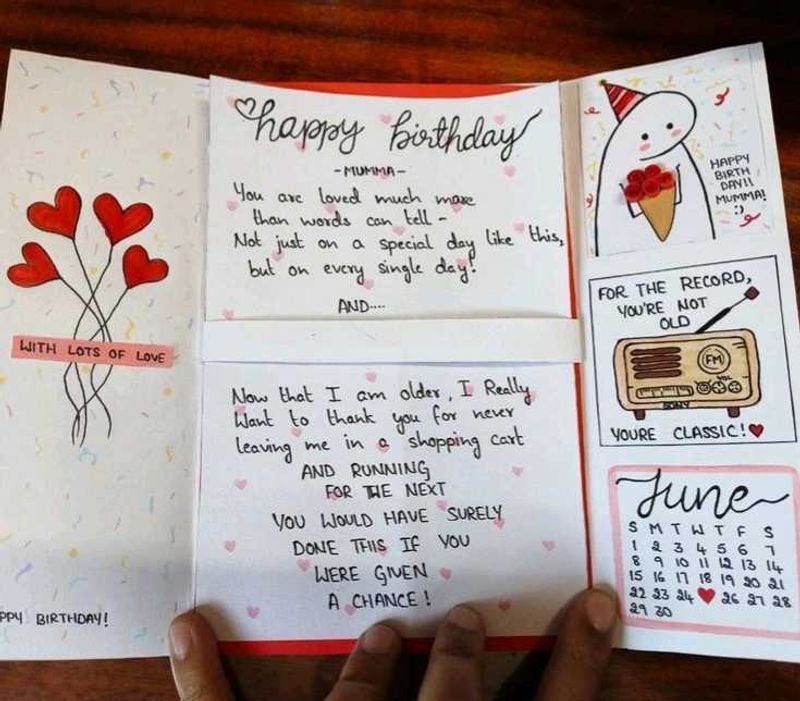 WITH LOTS OF LOVE
PPY BIRTHDAY!
happy birthday
-MUMMA-
You are loved much more
than words can tell -
Not just on a special day like this,
but on every single day!
AND....
Now that I am older, I Really
Want to thank you for never
leaving me in a shopping cart
AND RUNNING
FOR THE NEXT
YOU WOULD HAVE SURELY
DONE THIS IF YOU
WERE GIVEN
A CHANCE!
HAPPY
BIRTH
DAY!!
MUMMA!
:)
FOR THE RECORD,
YOU'RE NOT
OLD
FM
VOL
SONY
YOURE CLASSIC!
June
S M T W T F S
1 2 3 4 5 6 7
8 9 10 11 12 13 14
15 16 17 18 19 20 21
22 23 24 26 27 28
29 30